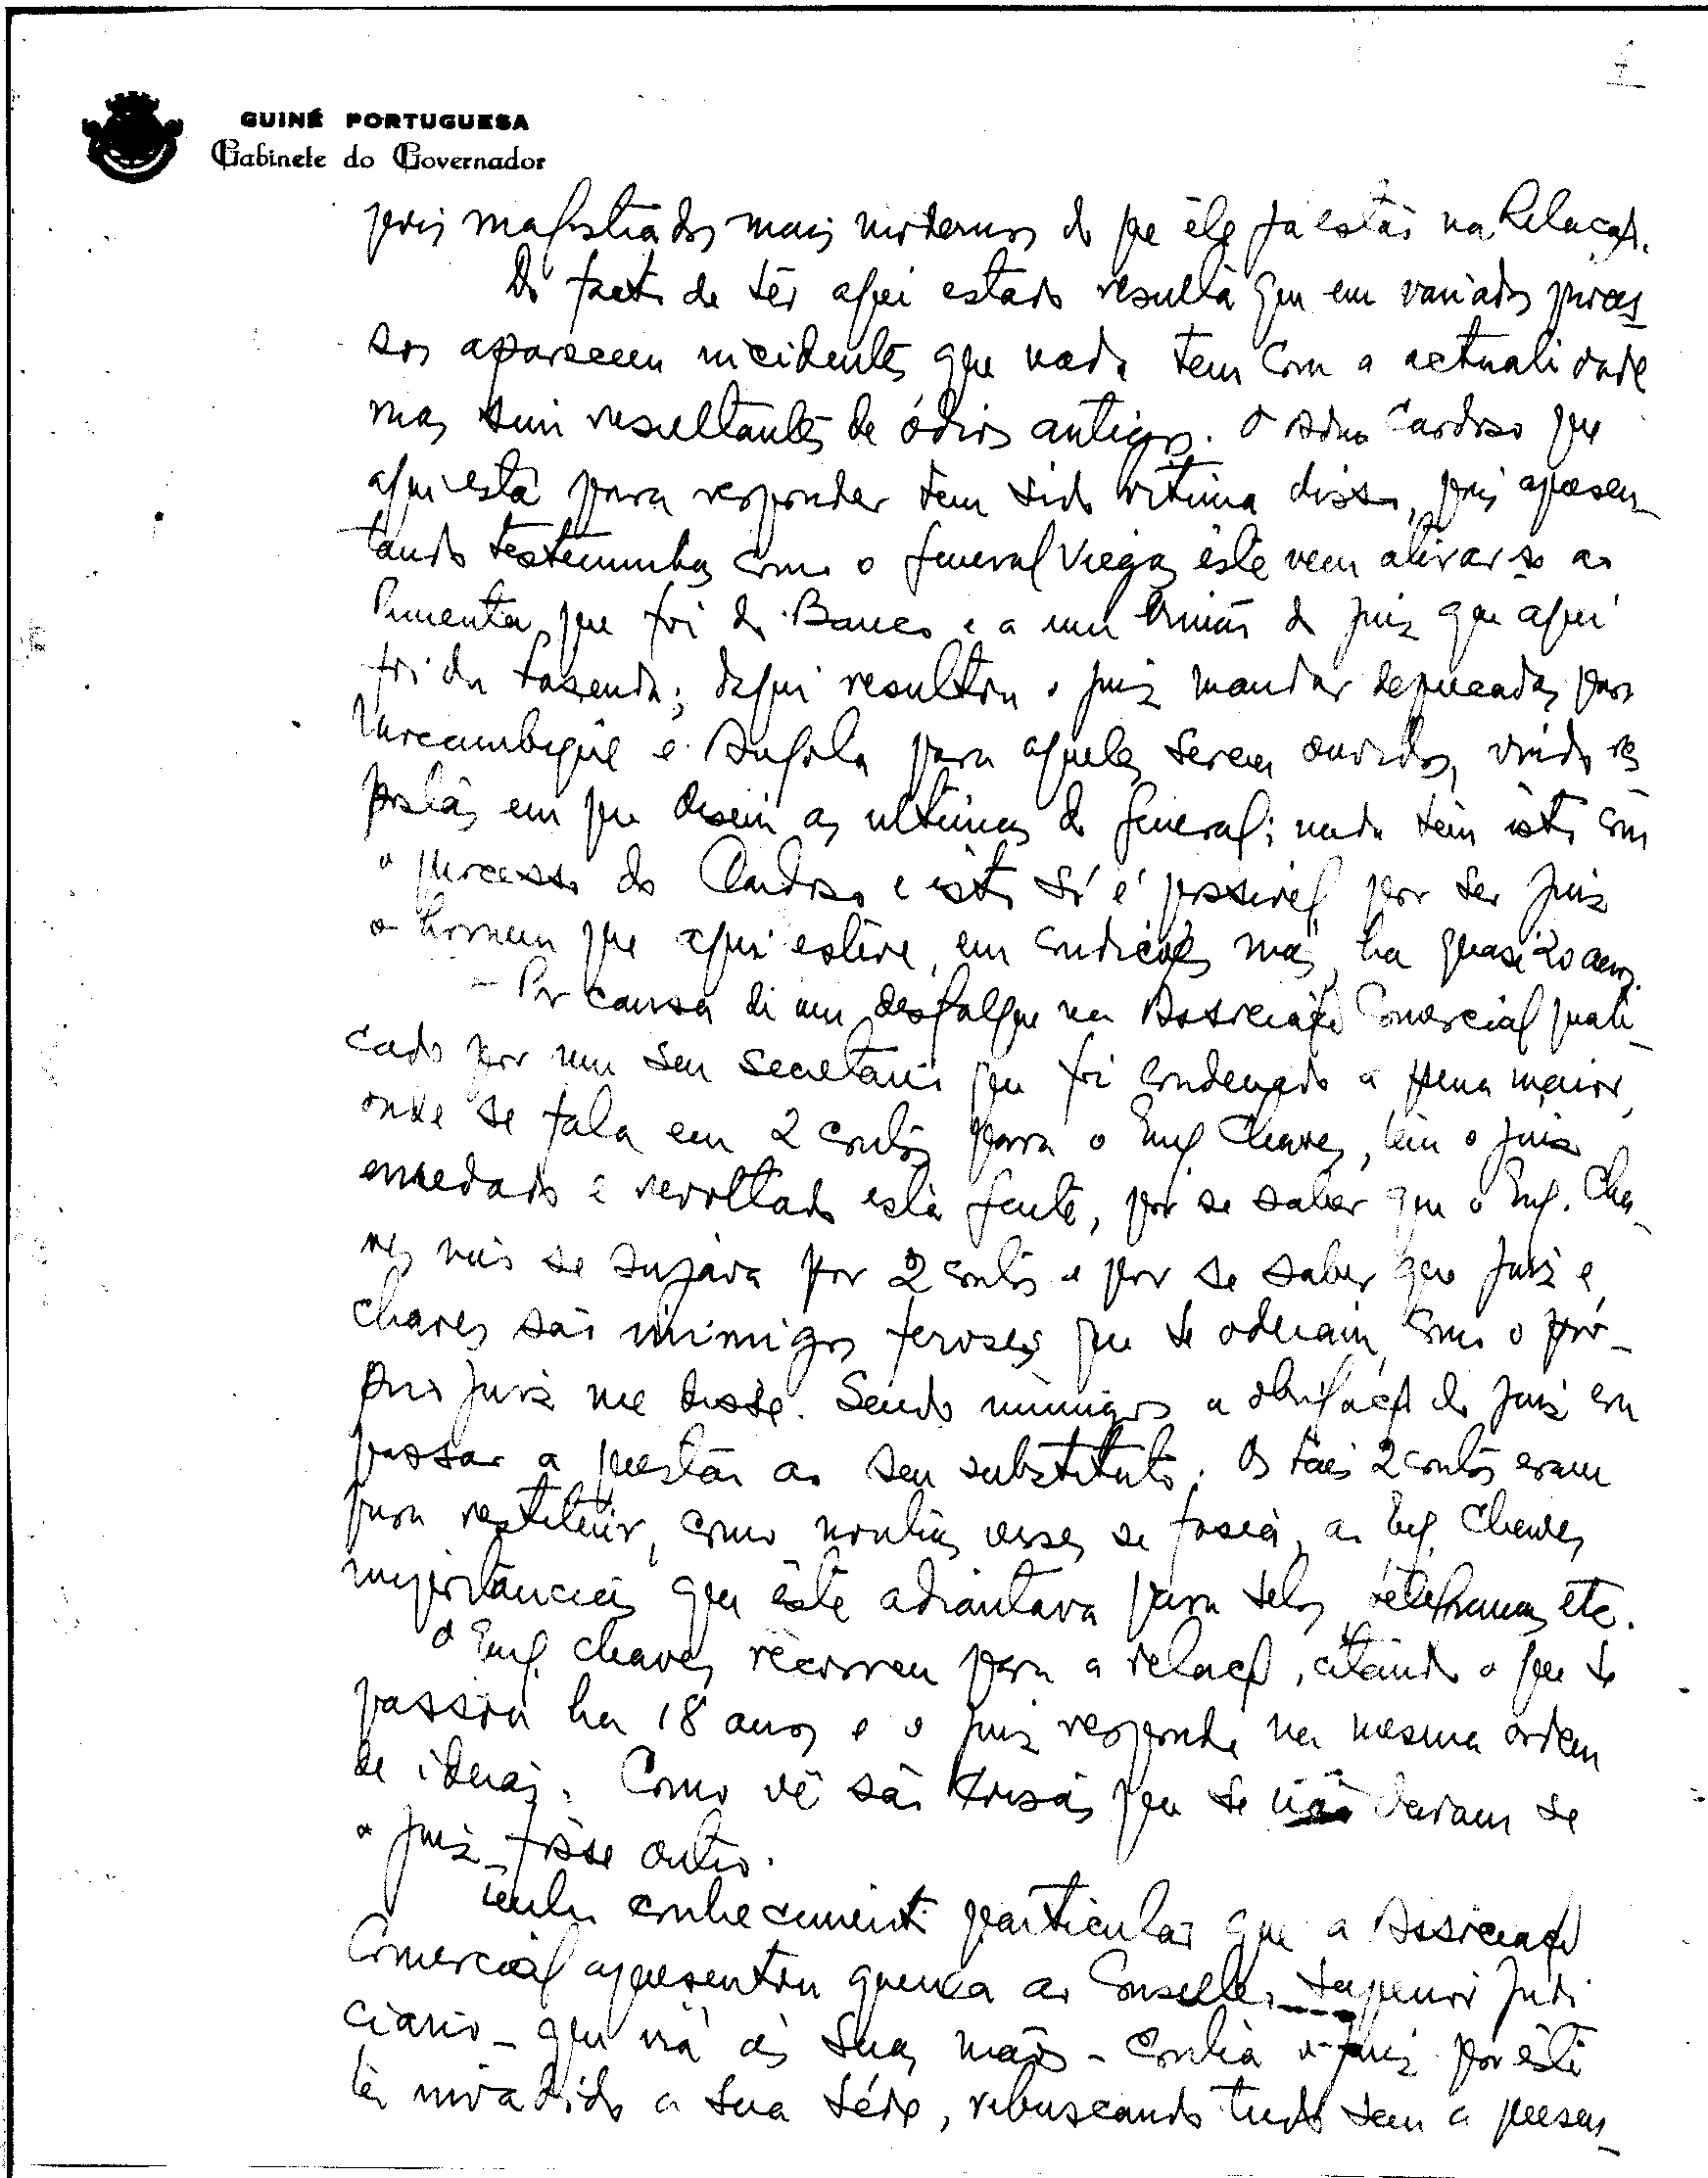 4
GUINÉ PORTUGUESA
Gabinete do Governador
pois magistrados mais modernos do que êle já estão na Relação.
Do facto de têr aqui estado resulta que em variados proces
sos aparecem incidentes que nada tem com a actualidade
mas sim resultantes de ódios antigos. O Cardoso que
aqui está para responder tem sido vitima disso, pois apresen-
tando testemunhas como o general Viegas êste vem atirar-se ao
Pimenta que foi do Banco e a um irmão do juiz que aqui
foi da Fazenda; daqui resultou o juiz mandar deprecadas para
Moçambique e Angola para aqueles serem ouvidos, vindo res
postas em que dizem as ultimas do general; nada tem isto com
o processo do Cardoso e isto só é possivel por ser juiz
o homem que aqui estêve, em condições más, ha quasi 20 anos.
- Por causa de um desfalque na Associação Comercial prati-
cado por um seu secretario que foi condenado a pena maior,
onde se fala em 2 contos para o Eng. Chaves, tem o juiz
enredado e revoltado esta gente, por se saber que o Eng. Cha-
ves não se sujava por 2 contos e por se saber que juiz e
Chaves são inimigos ferozes que se odeiam, como o pró-
prio juiz me disse. Sendo inimigos a obrigação do juiz era
passar a questão ao seu substituto. Os tais 2 contos eram
para restituir, como noutras vezes se fazia, ao Eng. Chaves
importancias que êste adiantava para selos, telefonemas etc.
O Eng. Chaves recorreu para a relação, citando o que se
passou ha 18 anos e o juiz responde na mesma ordem
de ideias. Como vê são coisas que se não davam se
o juiz fôsse outro.
Tenho conhecimento particular que a Associação
Comercial apresentou queixa ao Conselho Superior Judi
ciario - que irá ás suas mãos - contra o juiz por êste
ter invadido a sua séde, rebuscando tudo sem a presen-